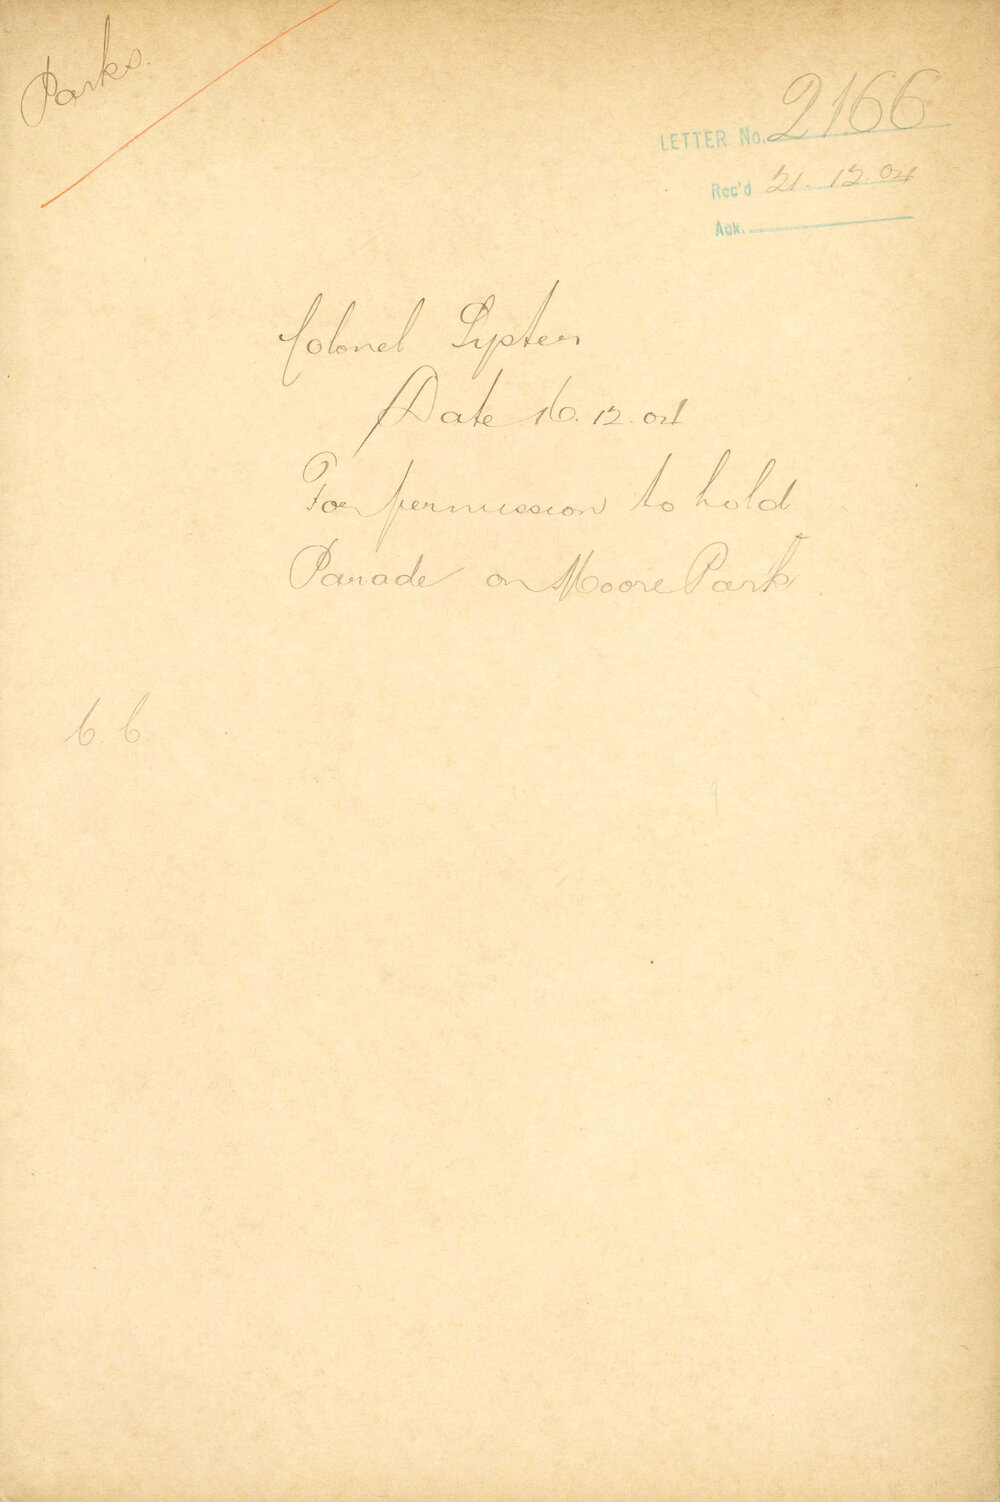 Parks.
LETTER No. 2166
Rec'd 21. 12 04
Ack.
Colonel Lyster
Date 16. 12. 04
For permission to hold
Parade on Moore Park
C. C.